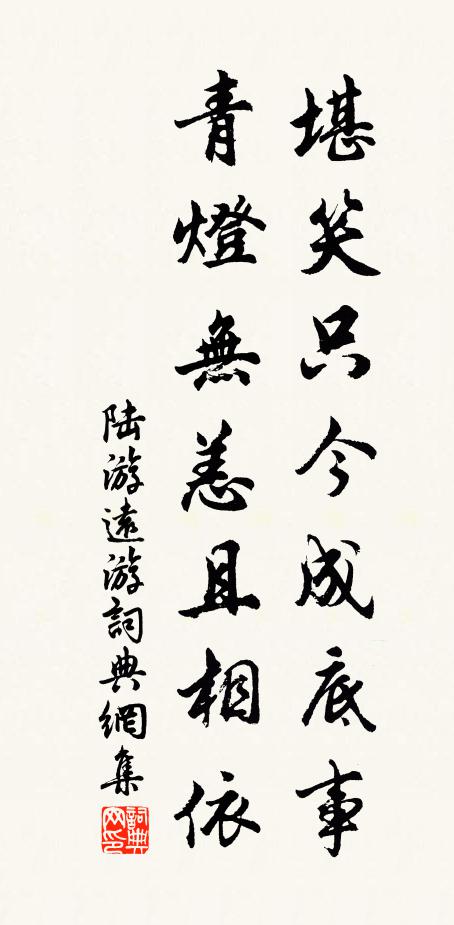 堪笑只今成底事
青燈無恙且相依
陆游遠游詞典網集
詞典网印